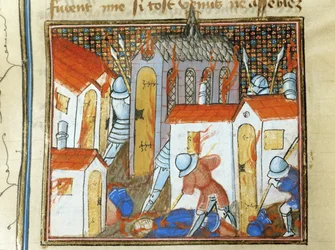 furent me si tost venus ne assemblez